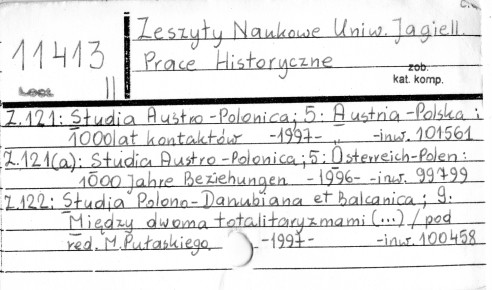 Zeszyty Naukowe Uniw. Jagiell.
11413
Prace Historyczne
II
zob.
kat. komp.
Z.121: Studia Austro-Polonica; 5: Austria-Polska:
1000 lat kontaktów -1997- -inw. 101561
Z.121(a): Studia Austro-Polonica; 5: Österreich-Polen:
1000 Jahre Beziehungen -1996- -inw. 99799
Z.122: Studia Polono-Danubiana et Balcanica; 9:
Między dwoma totalitaryzmami (...) / pod
red. M. Pułaskiego. -1997- -inw. 100458